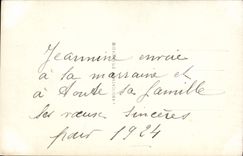 Jeannine envoie
à sa marraine et
à toute sa famille
ses vœux sincères
pour 1924